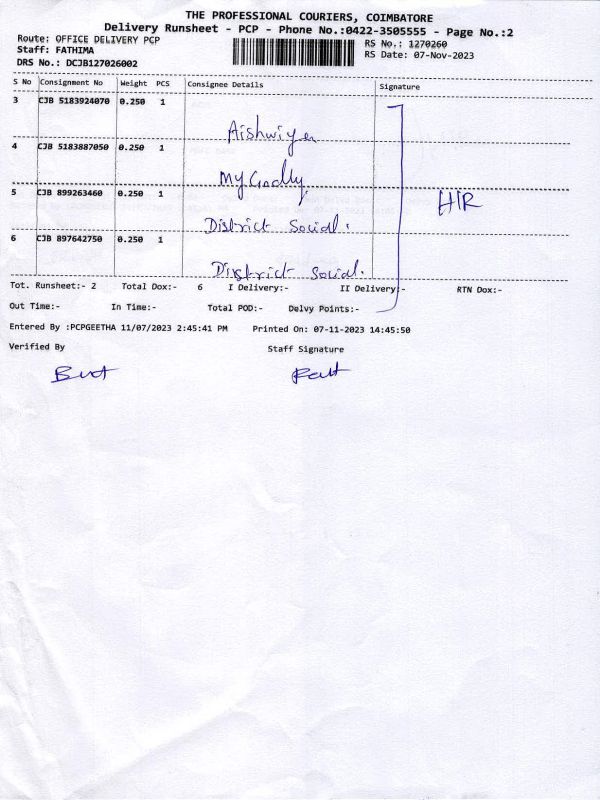 THE PROFESSIONAL COURIERS, COIMBATORE
Delivery Runsheet - PCP - Phone No.:0422-3505555 - Page No.:2
Route: OFFICE DELIVERY PCP RS No.: 1270260
Staff: FATHIMA RS Date: 07-Nov-2023
DRS No.: DCJB127026002
S No Consignment No Weight PCS Consignee Details Signature
3 CJB 5183924070 0.250 1
Aishwiya
4 CJB 5183887050 0.250 1
5 CJB 899263460 0.250 1 HR
District Social.
6 CJB 897642750 0.250 1
District Social.
Tot. Runsheet:- 2 Total Dox:- 6 I Delivery:- II Delivery:- RTN Dox:-
Out Time:- In Time:- Total POD:- Delvy Points:-
Entered By :PCPGEETHA 11/07/2023 2:45:41 PM Printed On: 07-11-2023 14:45:50
Verified By Staff Signature